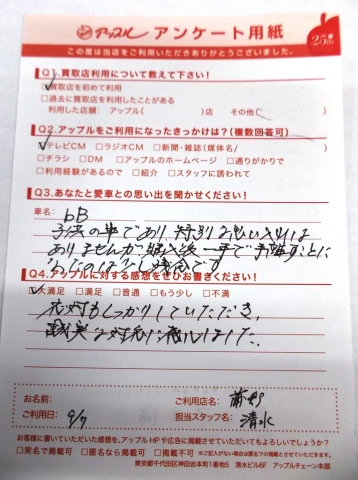 アップル アンケート用紙
25th
この度は当店をご利用いただきありがとうございました。
Q1.買取店利用について教えて下さい!
□買取店を初めて利用
□過去に買取店を利用したことがある
利用した店舗: アップル( )店 その他( )
Q2.アップルをご利用になったきっかけは?(複数回答可)
□テレビCM □ラジオCM □新聞・雑誌(媒体名/ )
□チラシ □DM □アップルのホームページ □通りがかりで
□利用経験があるので □紹介 □スタッフに誘われて
Q3.あなたと愛車との思い出を聞かせください!
車名: bB
子供の車であり、特別な思い入れは
ありませんが 一年で手離すことに
残念です
Q4.アップルに対する感想をぜひお書きください!
□大満足 □満足 □普通 □もう少し □不満
応対もしっかりしていただき、
誠実な対応に感謝しました。
お名前:
ご利用店名:
ご利用日: 9/7
担当スタッフ名: 清水
お客様に書いていただいた感想を、アップルHPや広告に掲載させていただいてもよろしいでしょうか?
□実名で掲載可 □匿名なら掲載可 □掲載不可 ※ご記入がない場合は匿名での掲載とさせていただきます。
東京都千代田区神田岩本町1番地5 清水ビル6F アップルチェーン本部